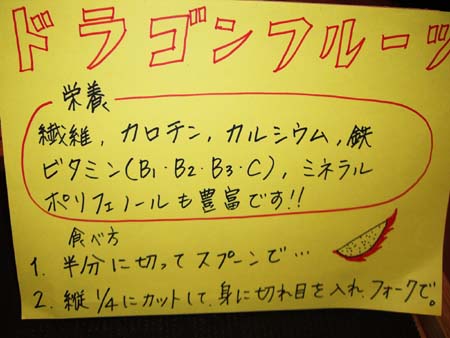 ドラゴンフルーツ
栄養
繊維, カロチン, カルシウム, 鉄
ビタミン(B1・B2・B3・C), ミネラル
ポリフェノールも豊富です!!
食べ方
1. 半分に切ってスプーンで…
2. 縦1/4にカットして、身に切れ目を入れ フォークで。